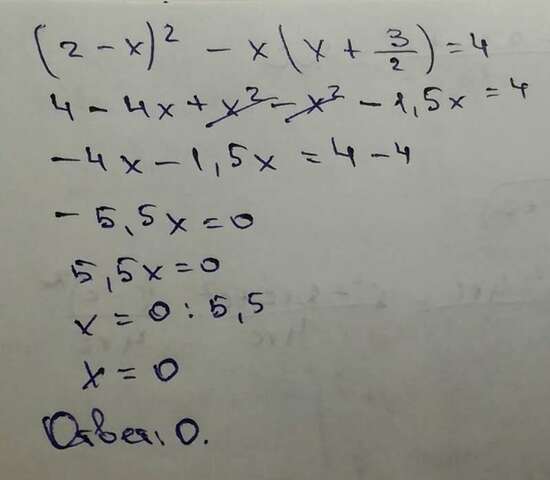 (2 - x)² - x(x + 3/2) = 4
4 - 4x + x² - x² - 1,5x = 4
-4x - 1,5x = 4 - 4
- 5,5x = 0
5,5x = 0
x = 0 : 5,5
x = 0
Ответ: 0.